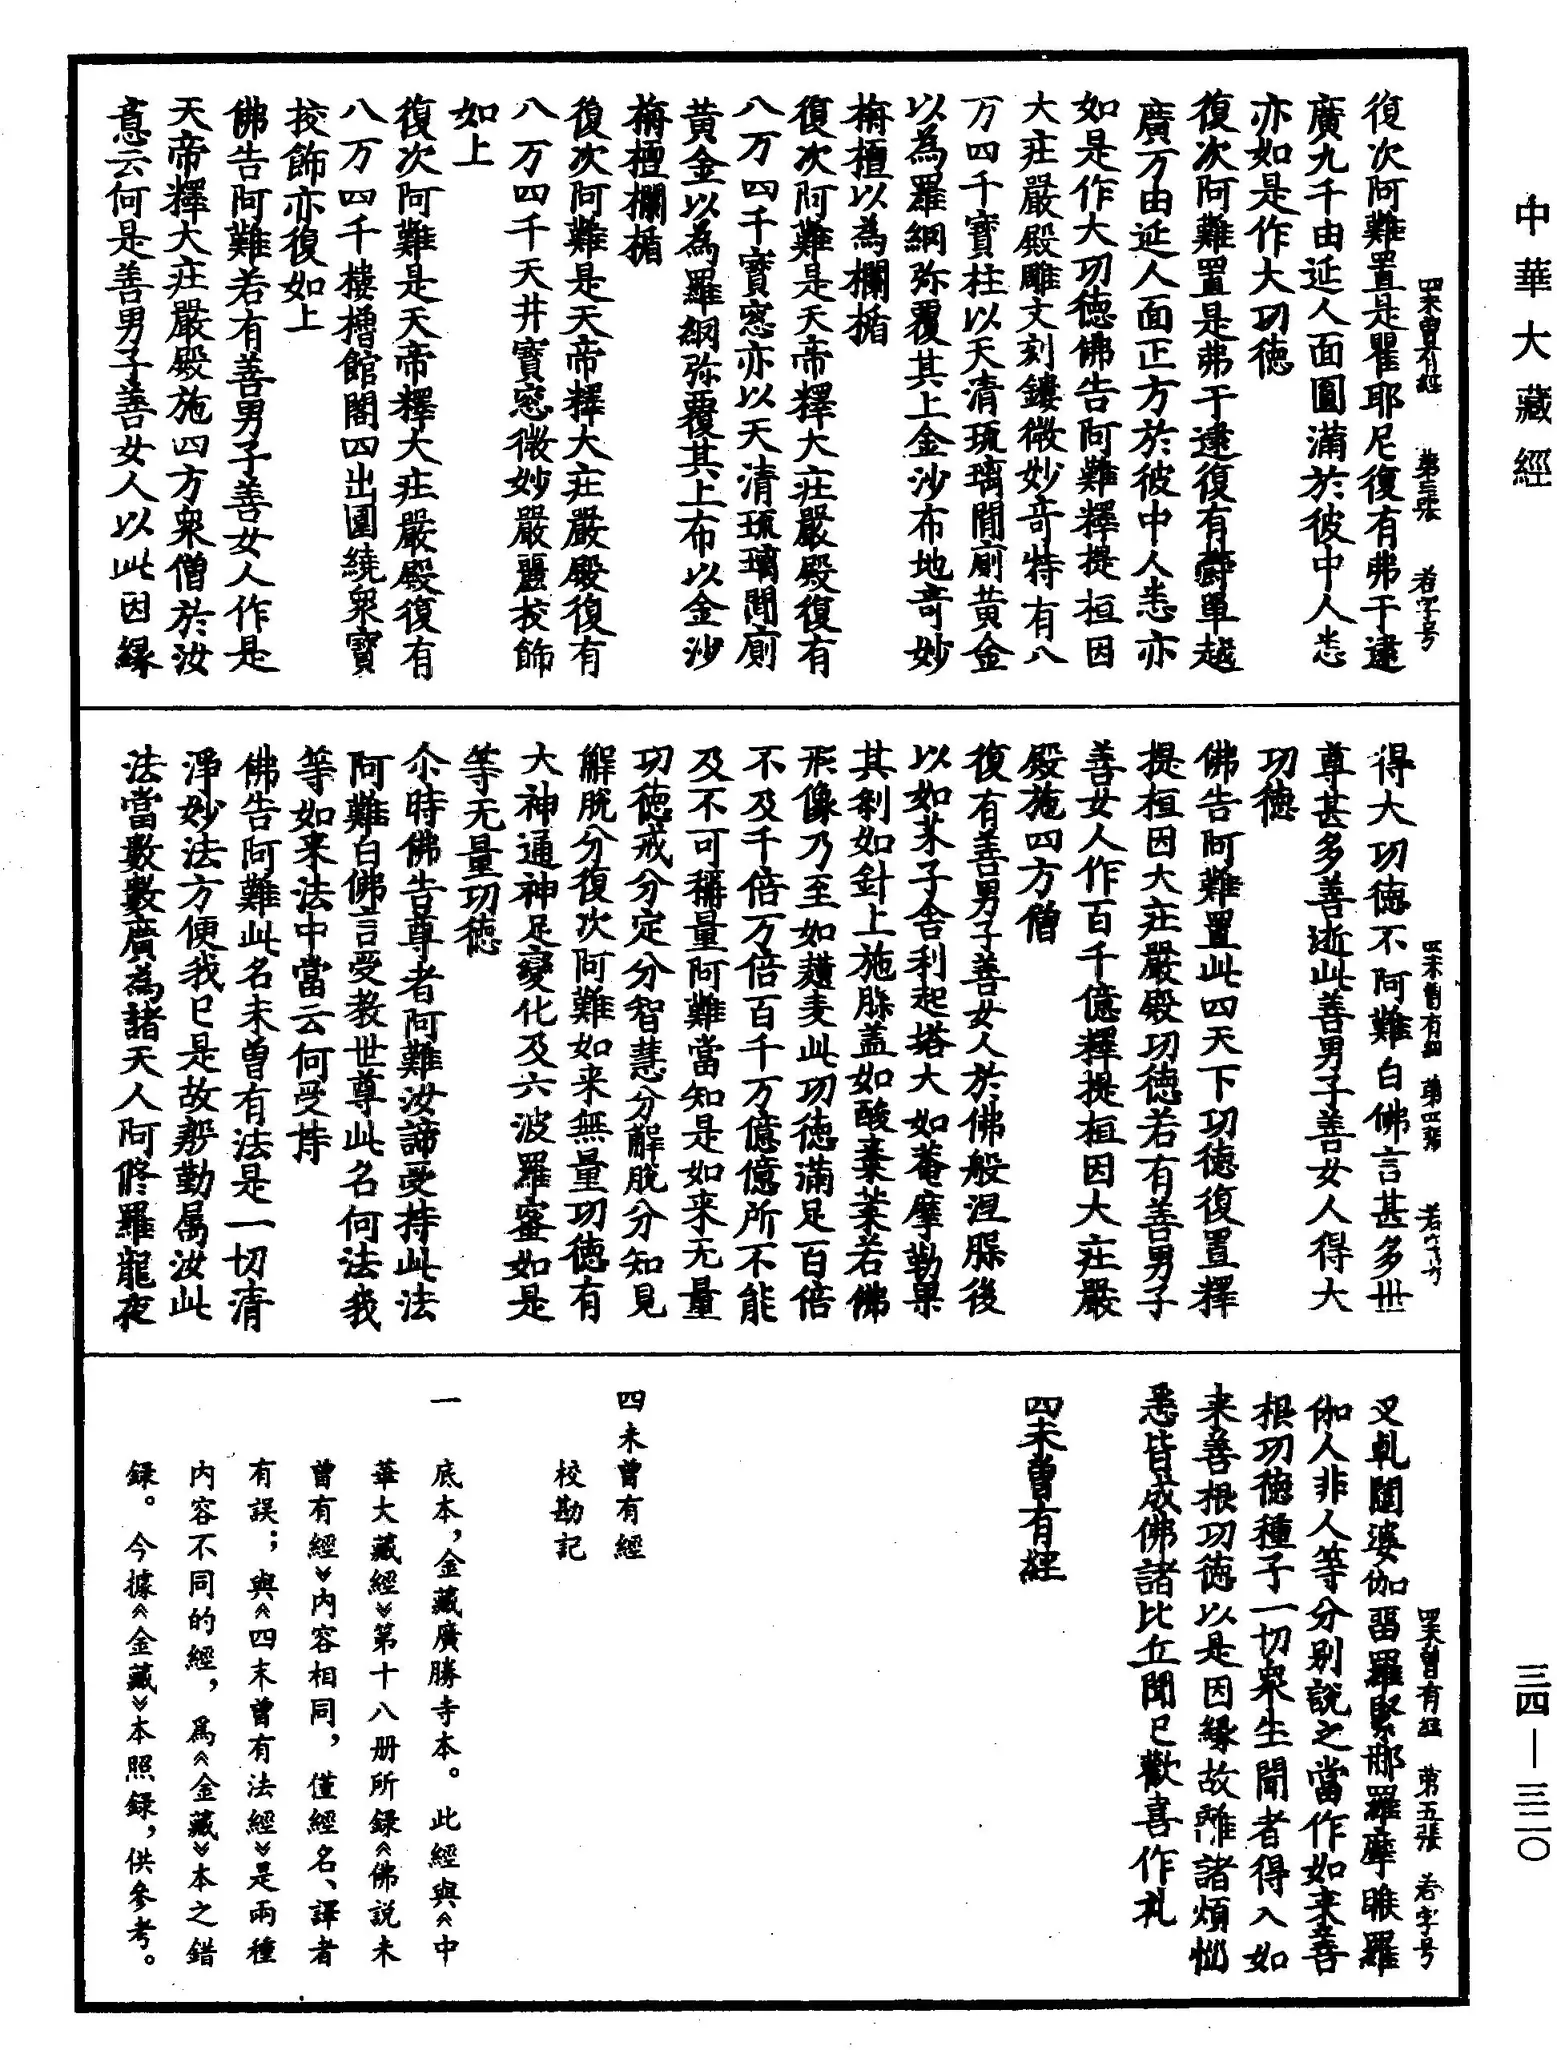 中華大藏經
四未曾有經 第三張 若字号
復次阿難置是瞿耶尼復有弗于逮
廣九千由延人面圓滿於彼中人悉
亦如是作大功德
復次阿難置是弗于逮復有欝單越
廣万由延人面正方於彼中人悉亦
如是作大功德佛告阿難釋提桓因
大庄嚴殿雕文刻鏤微妙竒特有八
万四千寶柱以天清琉璃間廁黃金
以為羅網弥覆其上金沙布地竒妙
栴檀以為欄楯
復次阿難是天帝釋大庄嚴殿復有
八万四千寶窓亦以天清琉璃間廁
黃金以為羅網弥覆其上布以金沙
栴檀欄楯
復次阿難是天帝釋大庄嚴殿復有
八万四千天井寶窓微妙嚴麗挍飾
如上
復次阿難是天帝釋大庄嚴殿復有
八万四千樓櫓館閣四出圍繞衆寶
挍飾亦復如上
佛告阿難若有善男子善女人作是
天帝釋大庄嚴殿施四方衆僧於汝
意云何是善男子善女人以此因緣
四未曾有經 第四張 若字号
得大功德不阿難白佛言甚多世
尊甚多善逝此善男子善女人得大
功德
佛告阿難置此四天下功德復置釋
提桓因大庄嚴殿功德若有善男子
善女人作百千億釋提桓因大庄嚴
殿施四方僧
復有善男子善女人於佛般涅脲後
以如芥子舍利起塔大如菴摩勒菓
其刹如針上施脲盖如酸棗葉若佛
形像乃至如䵃麦此功德滿足百倍
不及千倍万倍百千万億億所不能
及不可稱量阿難當知是如来无量
功德戒分定分智慧分解脫分知見
解脫分復次阿難如来無量功德有
大神通神足變化及六波羅蜜如是
等无量功德
尒時佛告尊者阿難汝諦受持此法
阿難白佛言受教世尊此名何法我
等如来法中當云何受持
佛告阿難此名未曾有法是一切清
淨妙法方便我已是故慇勤属汝此
法當數數廣為諸天人阿修羅龍夜
四未曾有經 第五張 若字号
叉乹闥婆伽留羅緊那羅摩睺羅
伽人非人等分别說之當作如来善
根功德種子一切衆生聞者得入如
来善根功德以是因緣故離諸煩惱
悉皆成佛諸比丘聞已歡喜作礼
四未曾有經
四未曾有經
校勘記
一 底本，金藏廣勝寺本。此經與《中
華大藏經》第十八册所録《佛説未
曾有經》内容相同，僅經名、譯者
有誤；與《四未曾有法經》是兩種
内容不同的經，爲《金藏》本之錯
録。今據《金藏》本照録，供參考。
三四—三二〇